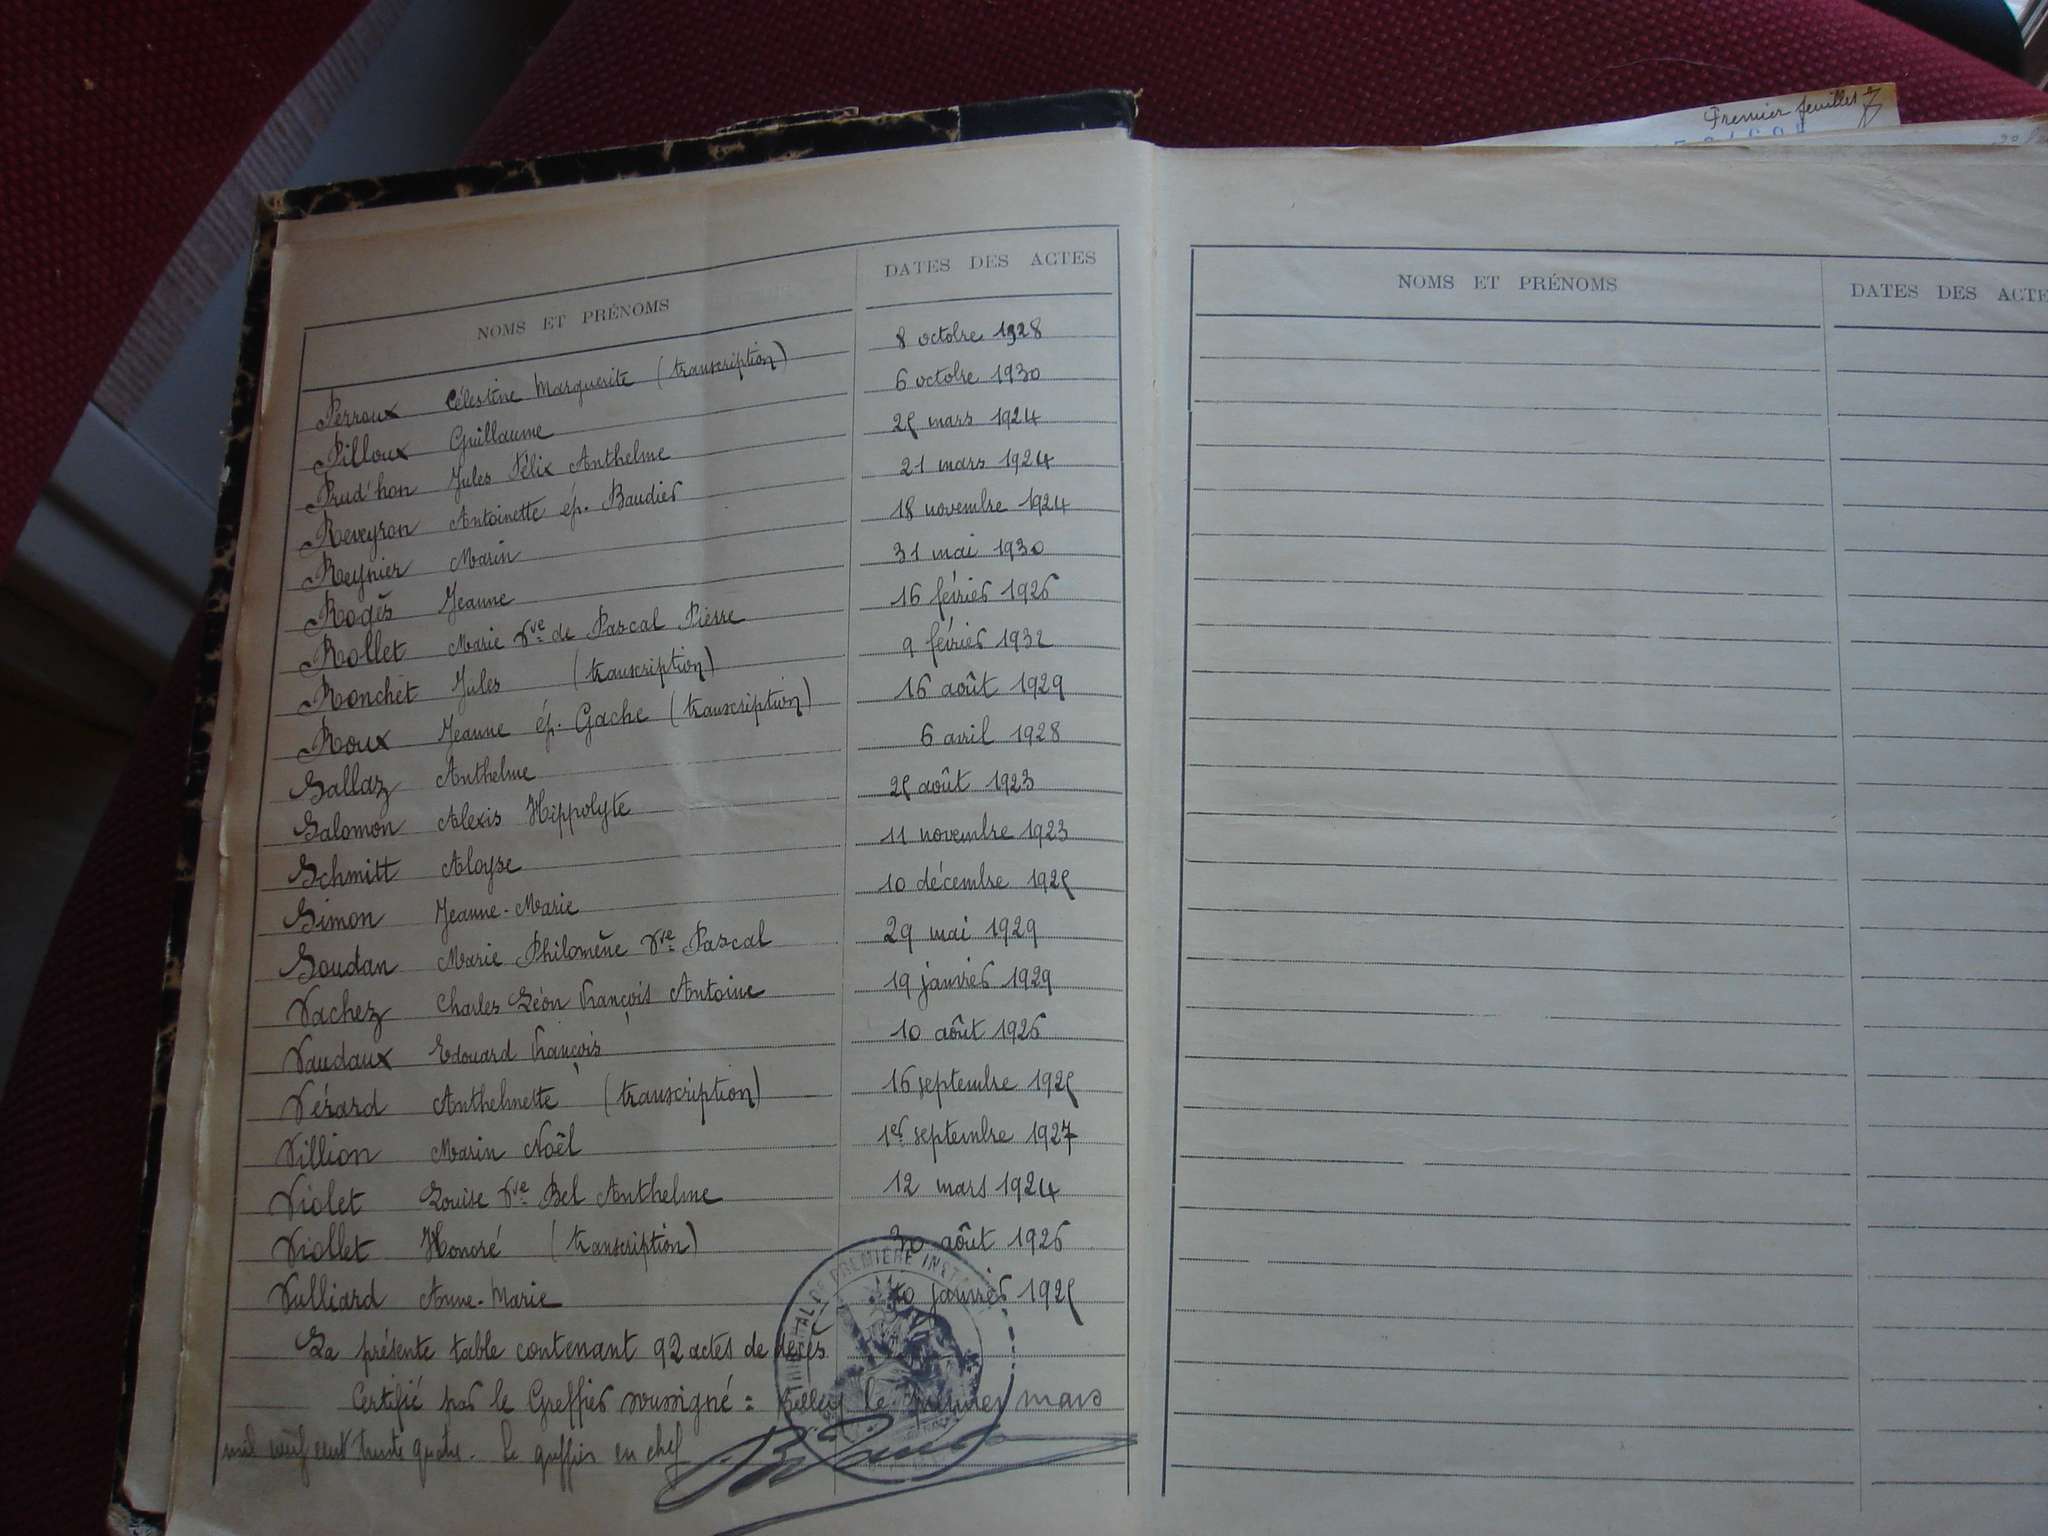 Premier feuillet
NOMS ET PRÉNOMS DATES DES ACTES
Perroux Célestine Marguerite (transcription) 8 octobre 1928
Pilloux Guillaume 6 octobre 1930
Prud'hon Jules Félix Anthelme 25 mars 1924
Reveyron Antoinette ép. Baudier 21 mars 1924
Reynier Marin 18 novembre 1924
Rogès Jeanne 31 mai 1930
Rollet Marie Vve de Pascal Pierre 16 février 1926
Ronchet Jules (transcription) 9 février 1932
Roux Jeanne ép. Gache (transcription) 16 août 1929
Sallaz Anthelme 6 avril 1928
Salomon Alexis Hippolyte 25 août 1923
Schmitt Aloyse 11 novembre 1923
Simon Jeanne-Marie 10 décembre 1925
Soudan Marie Philomène Vve Pascal 29 mai 1929
Vachez Charles Léon François Antoine 19 janvier 1929
Vaudaux Edouard François 10 août 1926
Vérard Anthelmette (transcription) 16 septembre 1925
Villion Marin Noël 1er septembre 1927
Violet Louise Vve Bel Anthelme 12 mars 1924
Viollet Honoré (transcription) 30 août 1926
Vulliard Anne-Marie 10 janvier 1925
La présente table contenant 92 actes de décès
Certifié par le Greffier soussigné = Belley le premier mars
mil neuf cent trente quatre. Le greffier en chef
TRIBUNAL DE PREMIÈRE
NOMS ET PRÉNOMS DATES DES ACTE